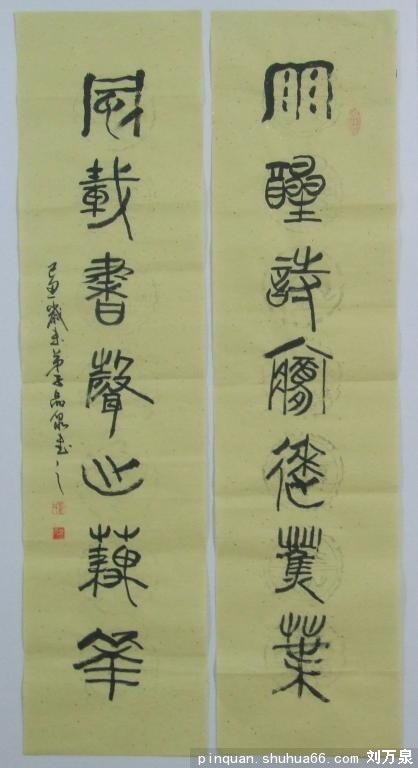 雨醒詩夢來蕉葉
風載書聲出藕華
己丑歲末弟子品泉書之
pinquan.shuhua66.com 刘万泉